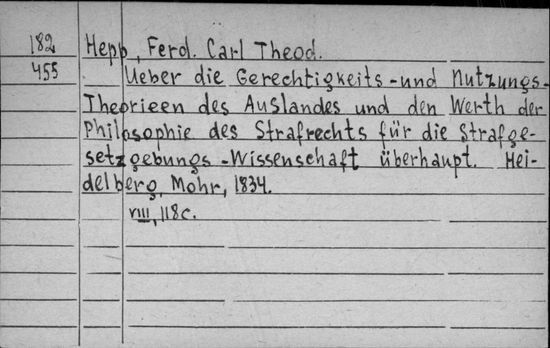 182 Hepp, Ferd. Carl Theod.
455 Ueber die Gerechtigkeits-und Nutzungs-
Theorieen des Auslandes und den Werth der
Philosophie des Strafrechts für die Strafge-
setzgebungs-Wissenschaft überhaupt. Hei-
delberg, Mohr, 1834.
VIII, 118c.